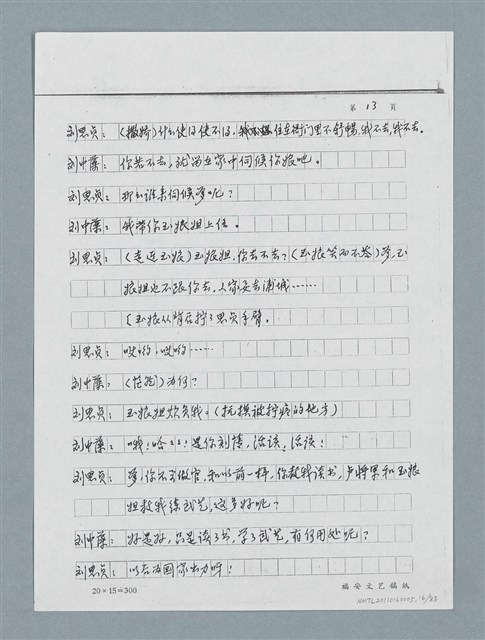 第 13 页
刘思贞：（撒娇）什么使得使不得，我不想住在衙门里不舒畅，我不去，我不去。
刘中藻：你若不去，就留在家中伺候你娘吧。
刘思贞：那么谁来伺候爹呢？
刘中藻：我带你玉娘姐上任。
刘思贞：（走近玉娘）玉娘姐，你去不去？（玉娘笑而不答）爹，玉
娘姐也不跟你去，人家要去浦城……
〔玉娘从背后拧了思贞手臂。
刘思贞：哎哟，哎哟……
刘中藻：（茫然）为何？
刘思贞：玉娘姐欺负我。（抚摸被拧疼的地方）
刘中藻：哦！哈！！！是你刻薄，活该！活该！
刘思贞：爹，你不要做官，和以前一样，你教我读书，卢将军和玉娘
姐教我练武艺，这多好呢？
刘中藻：好是好，只是读了书，学了武艺，有何用处呢？
刘思贞：以后为国家出力呀！
20×15=300
福安文艺稿纸
NMTL20110160005，16/83